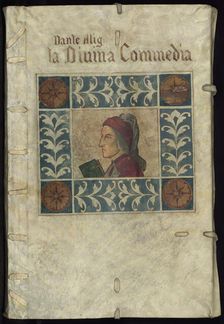 Dante Alig
la Divina Commedia